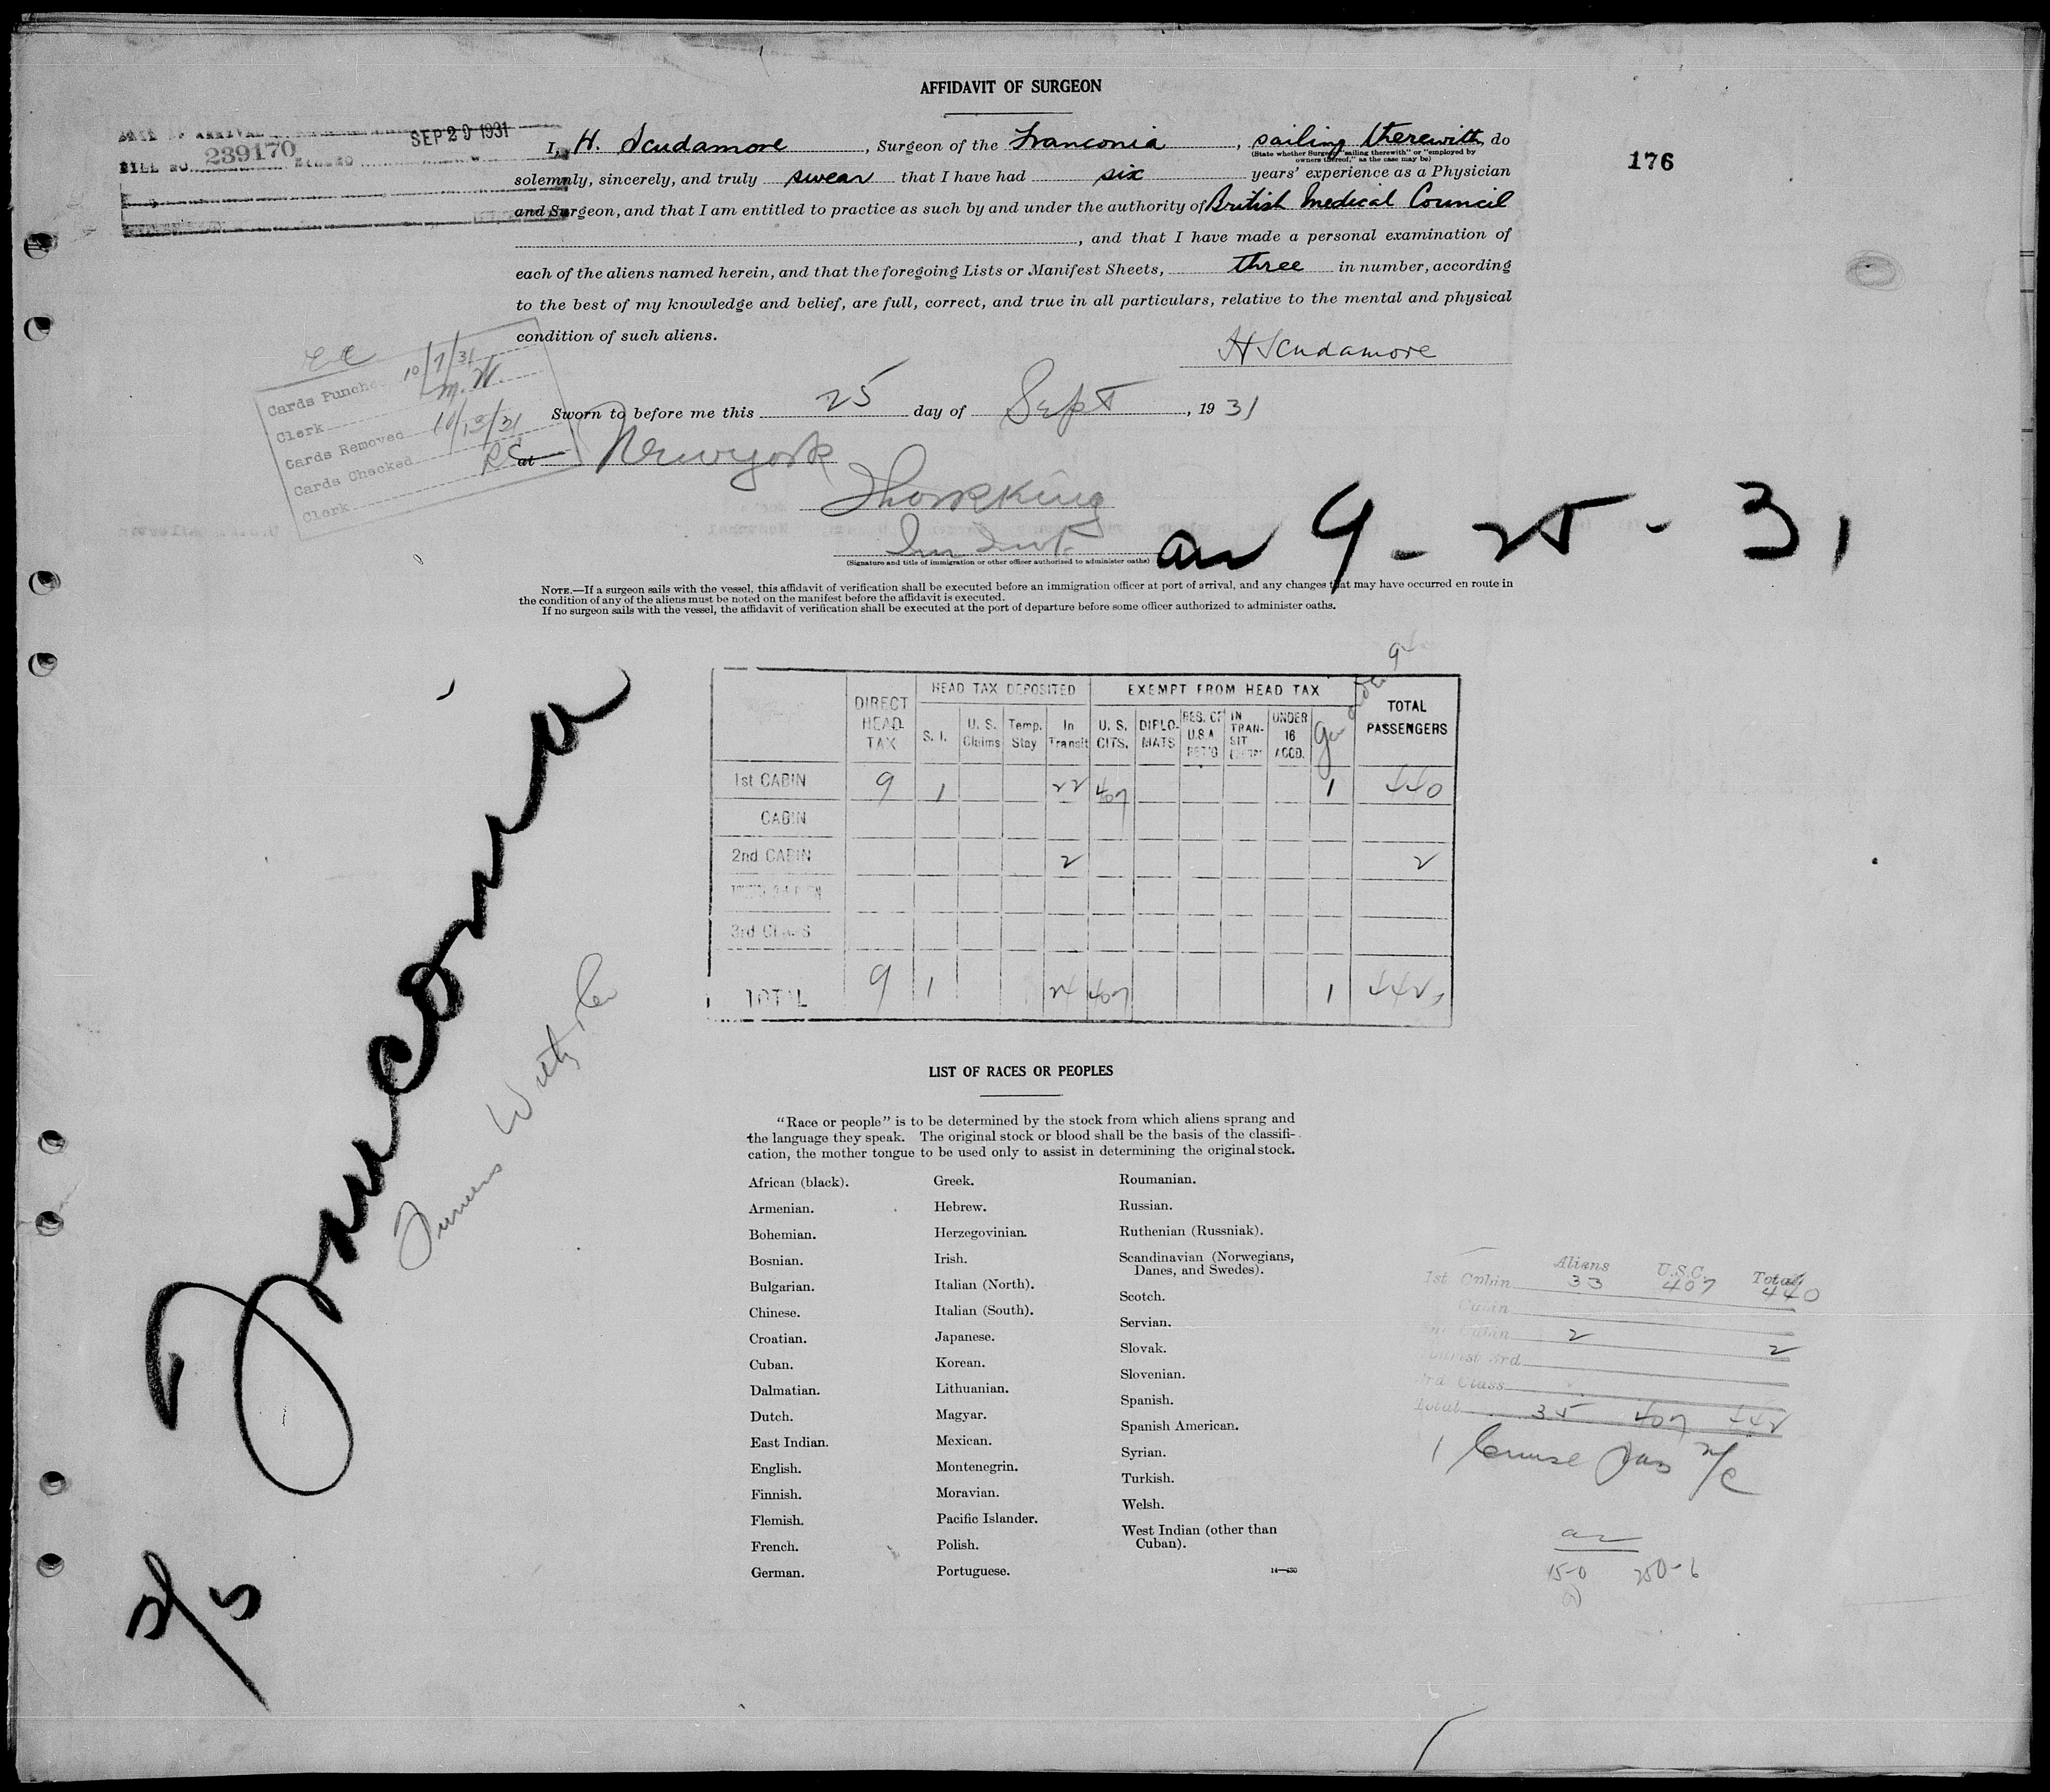 AFFIDAVIT OF SURGEON
SEP 29 1931
BILL NO. 239170
176
I, H. Scudamore, Surgeon of the Franconia, sailing therewith, do
(State whether Surgeon "sailing therewith" or "employed by
owners thereof," as the case may be)
solemnly, sincerely, and truly swear that I have had six years' experience as a Physician
and Surgeon, and that I am entitled to practice as such by and under the authority of British Medical Council
, and that I have made a personal examination of
each of the aliens named herein, and that the foregoing Lists or Manifest Sheets, three in number, according
to the best of my knowledge and belief, are full, correct, and true in all particulars, relative to the mental and physical
condition of such aliens.
H Scudamore
Cards Punched 10/7/31
Clerk M.W.
Cards Removed 10/13/31
Cards Checked
Clerk
Sworn to before me this 25 day of Sept, 1931
at New york
(Signature and title of immigration or other officer authorized to administer oaths)
9-25-31
NOTE.—If a surgeon sails with the vessel, this affidavit of verification shall be executed before an immigration officer at port of arrival, and any changes that may have occurred en route in
the condition of any of the aliens must be noted on the manifest before the affidavit is executed.
If no surgeon sails with the vessel, the affidavit of verification shall be executed at the port of departure before some officer authorized to administer oaths.
DIRECT HEAD TAX HEAD TAX DEPOSITED EXEMPT FROM HEAD TAX TOTAL PASSENGERS
S. I. U. S. Claims Temp. Stay In Transit U. S. CITS. DIPLO-MATS RES. OF U.S.A. RET'G IN TRAN-SIT UNDER 16 ACCD.
1st CABIN 9 1 22 407 1 440
CABIN
2nd CABIN 2 2
3rd CLASS
TOTAL 9 1 24 407 1 442
Franconia
LIST OF RACES OR PEOPLES
"Race or people" is to be determined by the stock from which aliens sprang and
the language they speak. The original stock or blood shall be the basis of the classifi-
cation, the mother tongue to be used only to assist in determining the original stock.
African (black).
Armenian.
Bohemian.
Bosnian.
Bulgarian.
Chinese.
Croatian.
Cuban.
Dalmatian.
Dutch.
East Indian.
English.
Finnish.
Flemish.
French.
German.
Greek.
Hebrew.
Herzegovinian.
Irish.
Italian (North).
Italian (South).
Japanese.
Korean.
Lithuanian.
Magyar.
Mexican.
Montenegrin.
Moravian.
Pacific Islander.
Polish.
Portuguese.
Roumanian.
Russian.
Ruthenian (Russniak).
Scandinavian (Norwegians,
Danes, and Swedes).
Scotch.
Servian.
Slovak.
Slovenian.
Spanish.
Spanish American.
Syrian.
Turkish.
Welsh.
West Indian (other than
Cuban).
14—430
Aliens U.S.C. Total
1st Cabin 33 407 440
Cabin
2nd Cabin 2 2
Tourist 3rd
3rd Class
Total 35 407 442
1 Cruise pas